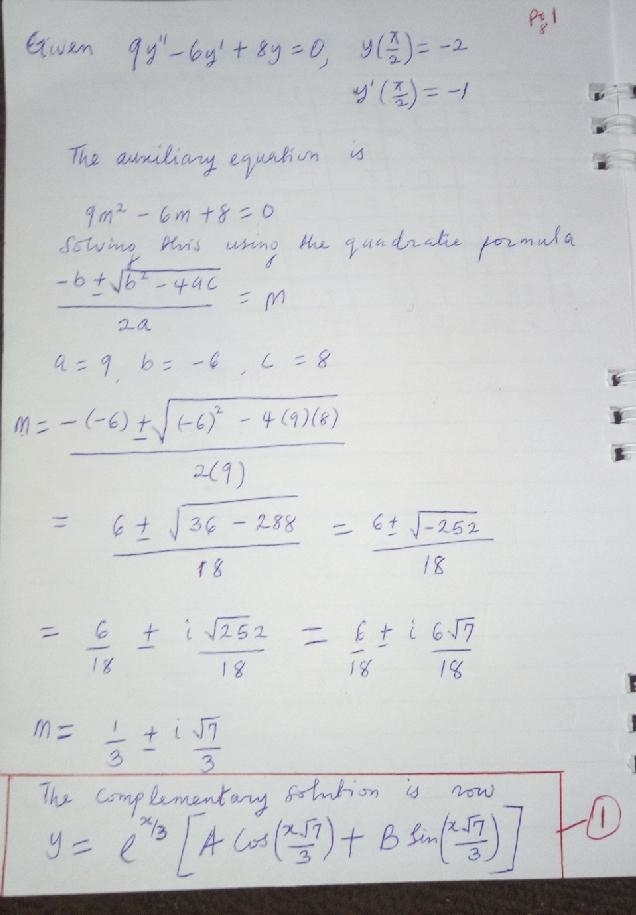 Pg 1
Given 9y'' - 6y' + 8y = 0, y(π/2) = -2
y'(π/2) = -1
The auxiliary equation is
9m² - 6m + 8 = 0
Solving this using the quadratic formula
(-b ± √(b² - 4ac))/2a = m
a = 9, b = -6, c = 8
m = (-(-6) ± √((-6)² - 4(9)(8)))/2(9)
= (6 ± √(36 - 288))/18 = (6 ± √(-252))/18
= 6/18 ± i √252/18 = 6/18 ± i 6√7/18
m = 1/3 ± i √7/3
The complementary solution is now
y = e^(x/3) [A Cos(x√7/3) + B Sin(x√7/3)] - ①